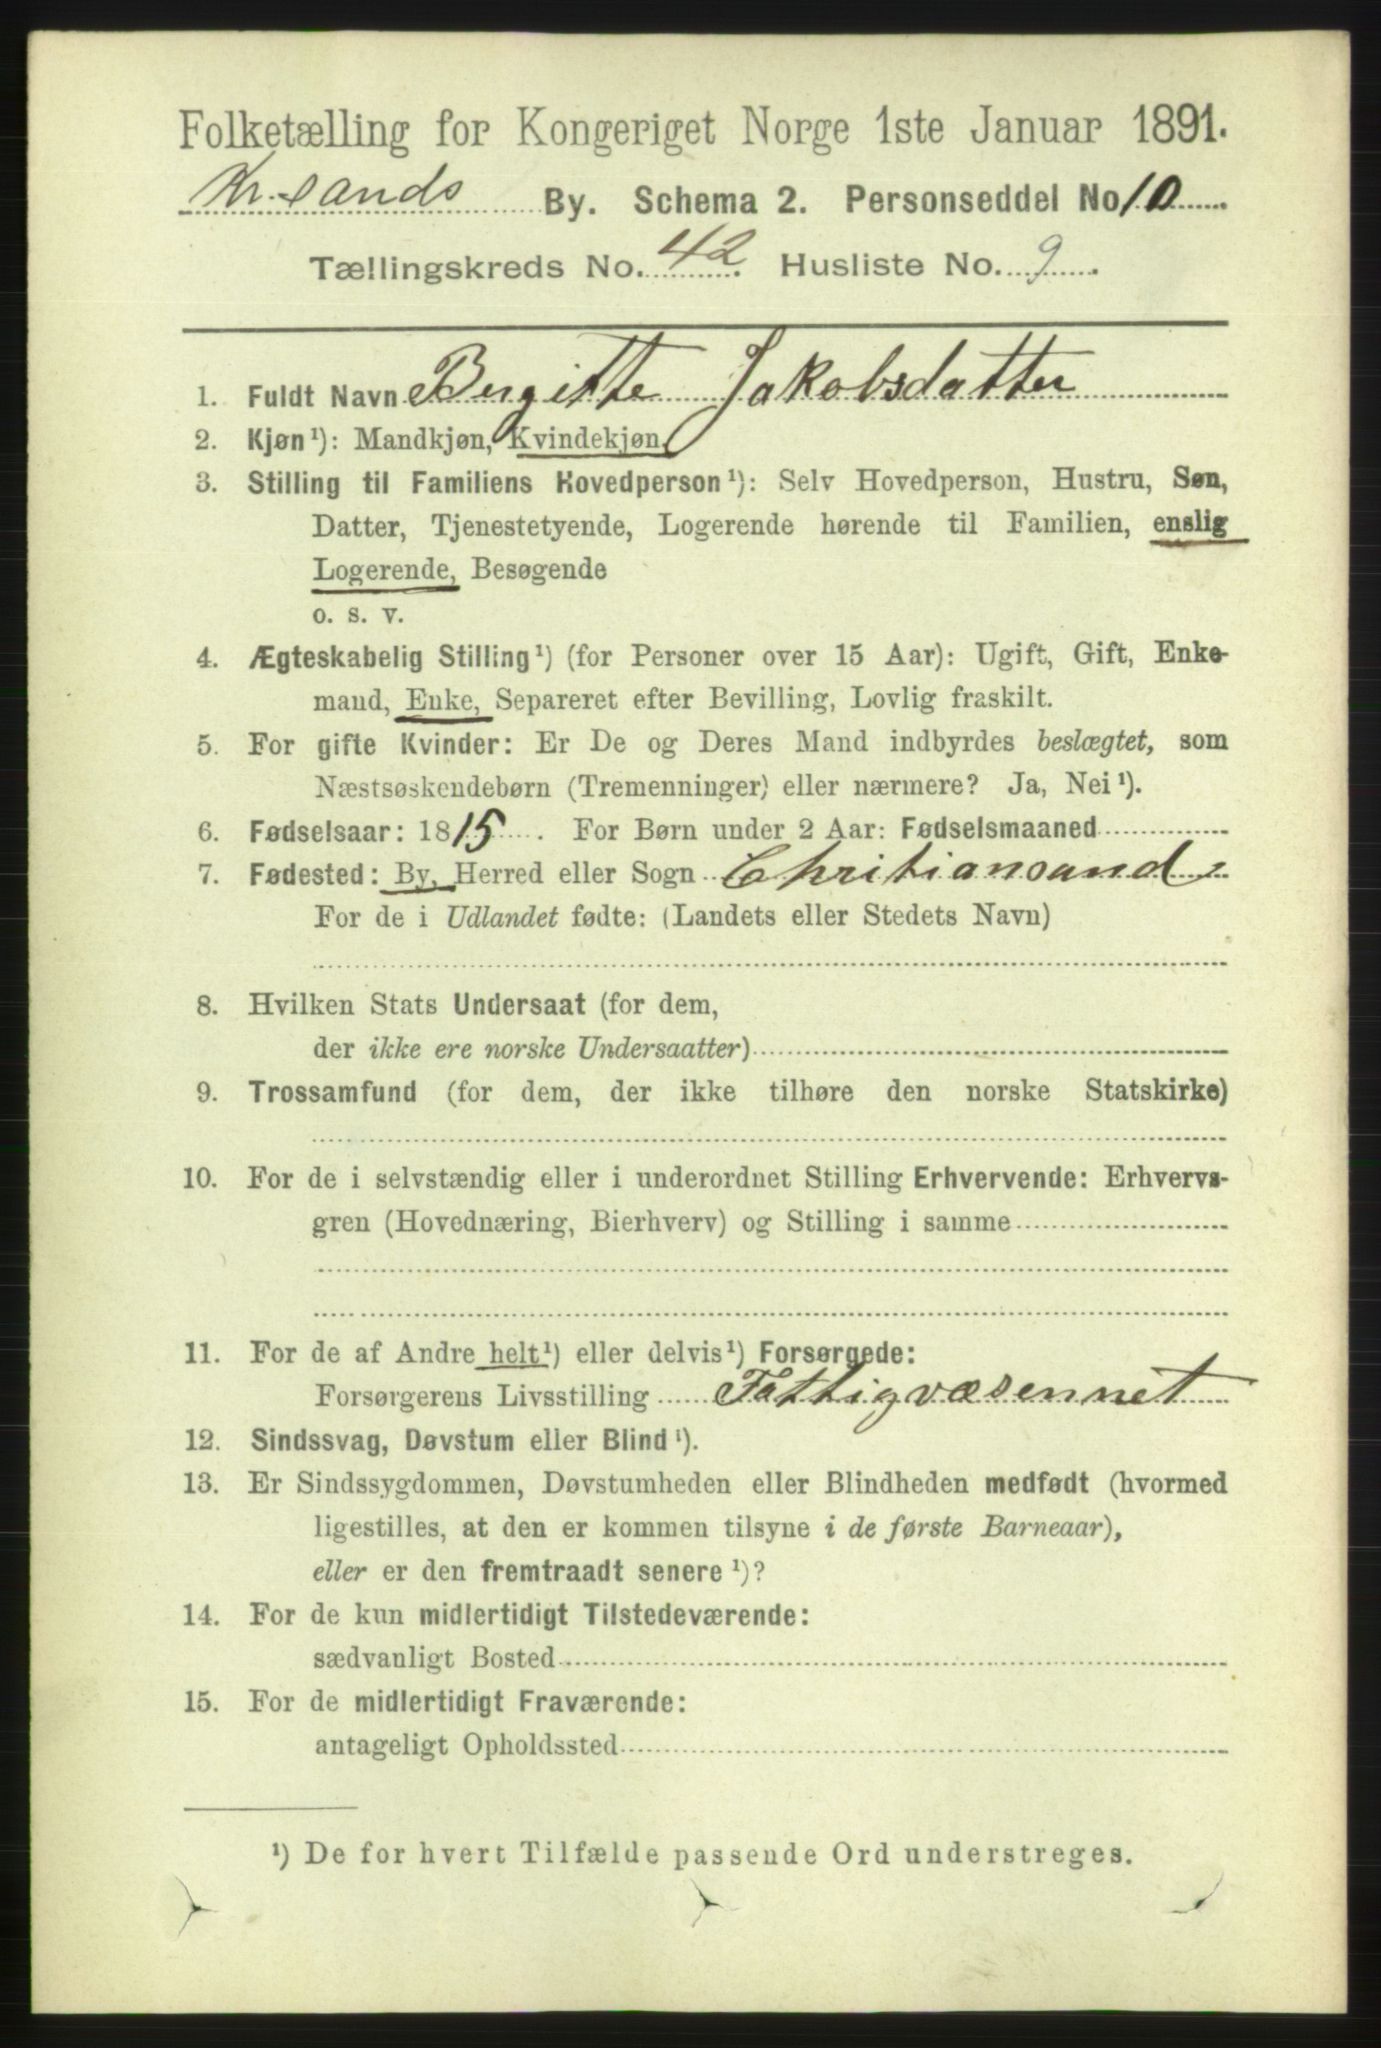 Folketælling for Kongeriget Norge 1ste Januar 1891.
Kr.sands By. Schema 2. Personseddel No 10
Tællingskreds No. 42. Husliste No. 9.
1. Fuldt Navn Bergitte Jakobsdatter
2. Kjøn¹): Mandkjøn, Kvindekjøn.
3. Stilling til Familiens Hovedperson¹): Selv Hovedperson, Hustru, Søn,
Datter, Tjenestetyende, Logerende hørende til Familien, enslig
Logerende, Besøgende
o. s. v.
4. Ægteskabelig Stilling¹) (for Personer over 15 Aar): Ugift, Gift, Enke-
mand, Enke, Separeret efter Bevilling, Lovlig fraskilt.
5. For gifte Kvinder: Er De og Deres Mand indbyrdes beslægtet, som
Næstsøskendebørn (Tremenninger) eller nærmere? Ja, Nei¹).
6. Fødselsaar: 1815. For Børn under 2 Aar: Fødselsmaaned
7. Fødested: By, Herred eller Sogn Chritiansand
For de i Udlandet fødte: (Landets eller Stedets Navn)
8. Hvilken Stats Undersaat (for dem,
der ikke ere norske Undersaatter)
9. Trossamfund (for dem, der ikke tilhøre den norske Statskirke)
10. For de i selvstændig eller i underordnet Stilling Erhvervende: Erhvervs-
gren (Hovednæring, Bierhverv) og Stilling i samme
11. For de af Andre helt¹) eller delvis¹) Forsørgede:
Forsørgerens Livsstilling Fattigvæsennet
12. Sindssvag, Døvstum eller Blind¹).
13. Er Sindssygdommen, Døvstumheden eller Blindheden medfødt (hvormed
ligestilles, at den er kommen tilsyne i de første Barneaar),
eller er den fremtraadt senere¹)?
14. For de kun midlertidigt Tilstedeværende:
sædvanligt Bosted
15. For de midlertidigt Fraværende:
antageligt Opholdssted
¹) De for hvert Tilfælde passende Ord understreges.